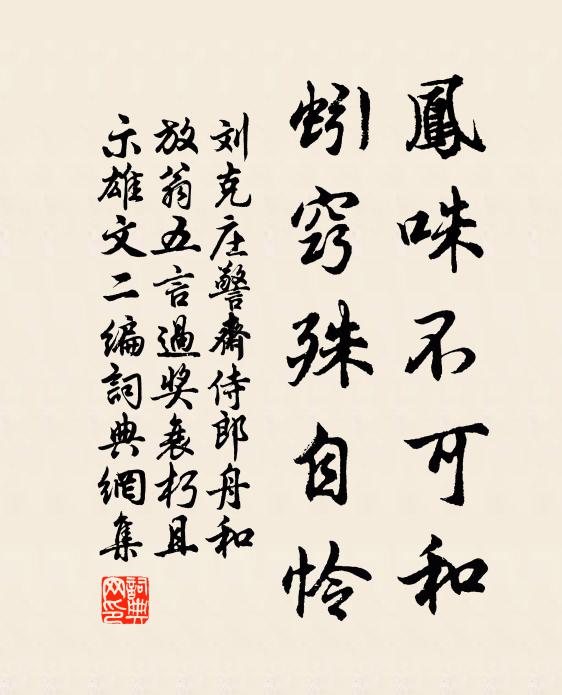 鳳咮不可和
蚓窍殊自怜
刘克庄警斋侍郎舟和
放翁五言過奖衰朽且
示雄文二编詞典網集
詞典网印